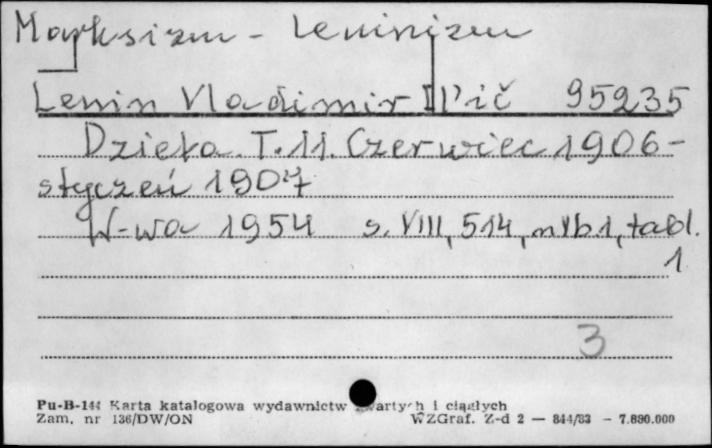 Marksizm - Leninizm
Lenin Vladimir Il'ič 95235
Dzieła. T. 11. Czerwiec 1906-
styczeń 1907
W-wa 1954 s. VIII, 514, nlb. 1, tabl.
1
3
Pu-B-144 Karta katalogowa wydawnictw zwartych i ciągłych
Zam. nr 136/DW/ON WZGraf. Z-d 2 — 844/83 - 7.890.000